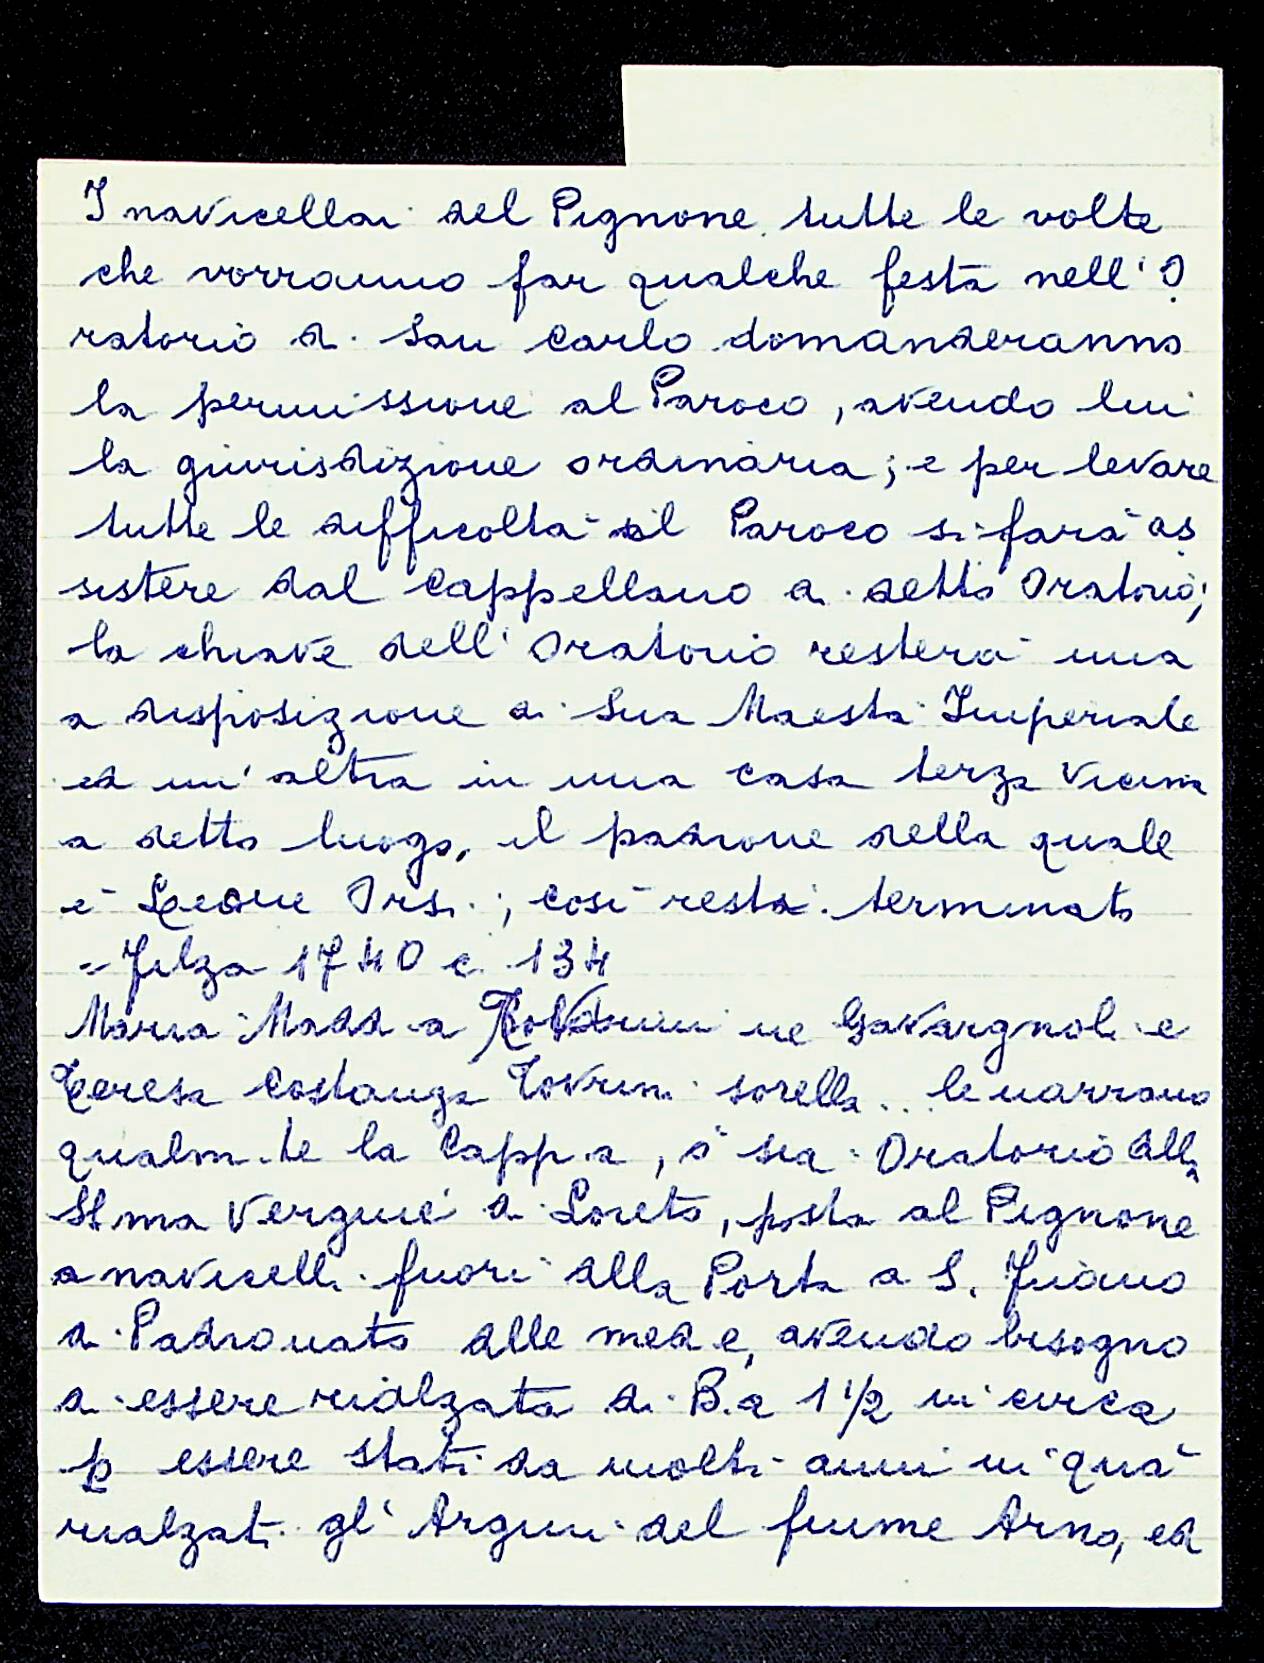 I navicellai del Pignone tutte le volte
che vorranno far qualche festa nell'O
ratorio di San Carlo domanderanno
la permissione al Paroco, avendo lui
la giurisdizione ordinaria; e per levare
tutte le difficoltà il Paroco si farà as
sistere dal Cappellano di detto Oratorio;
la chiave dell'Oratorio resterà una
a disposizione di Sua Maestà Imperiale
ed un'altra in una casa terza vicina
a detto luogo, il padrone della quale
è Leone Orsi; così resta terminato
= Filza 1740 c. 134
Maria Madd.a ne Gavargnoli e
Teresa Costanza Tovrini sorelle... le narrano
qualm.te la Capp.a, ò sia Oratorio della
SS.ma Vergine di Loreto, posta al Pignone
a navicelli fuori della Porta a S. Friano
di Padronato delle med.e, avendo bisogno
di essere rialzata di B.a 1 1/2 in circa
p essere stati da molti anni in quà
rialzati gl'Argini del fiume Arno, ed